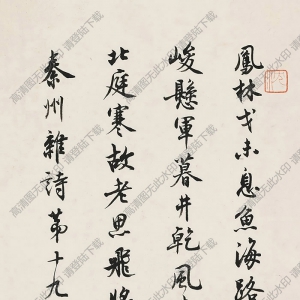 鳳林戈未息魚海路
峻懸軍幕井乾風
北庭寒故老思飛將
秦州雜詩第十九